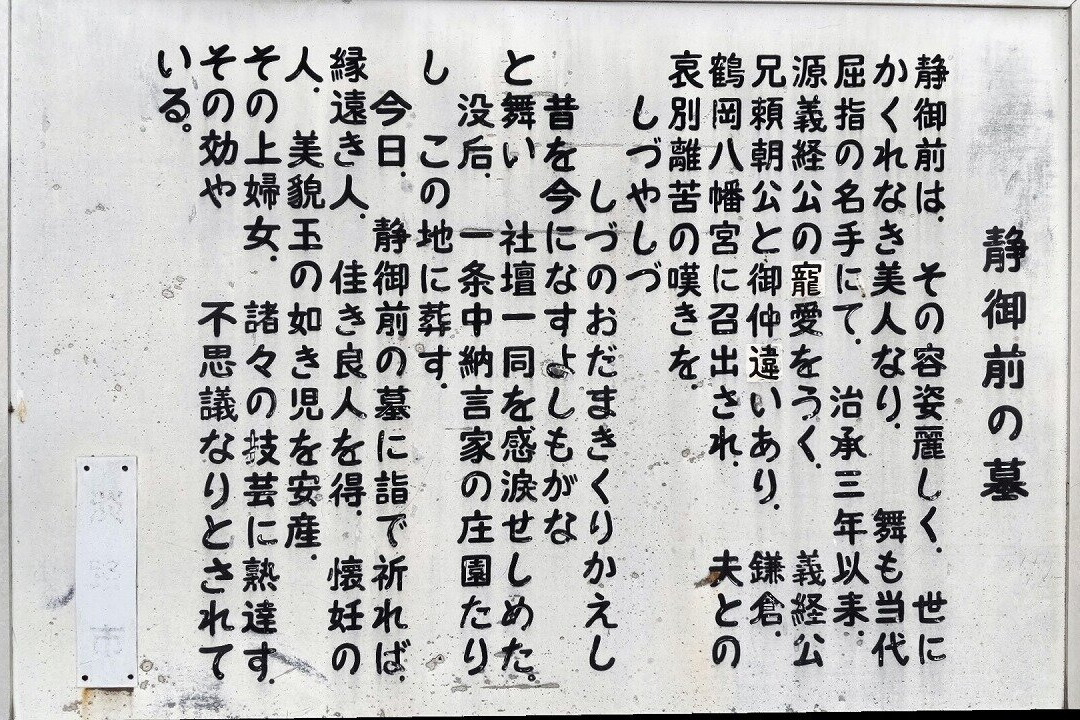 静御前の墓
静御前は、その容姿麗しく、世に
かくれなき美人なり、舞も当代
屈指の名手にて、治承三年以来、
源義経公の寵愛をうく、義経公
兄頼朝公と御仲違いあり、鎌倉、
鶴岡八幡宮に召出され、夫との
哀別離苦の嘆きを、
しづやしづ
しづのおだまきくりかえし
昔を今になすよしもがな
と舞い 社壇一同を感涙せしめた。
没后、一条中納言家の庄園たり
し この地に葬す、
今日、静御前の墓に詣で祈れば、
縁遠き人、佳き良人を得、懐妊の
人、美貌玉の如き児を安産、
その上婦女、諸々の技芸に熟達す、
その効や 不思議なりとされて
いる。